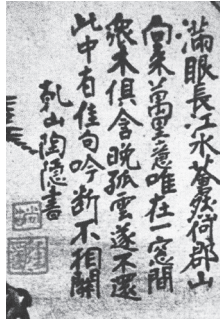 滿眼長江水蒼然何郡山
向来萬里意唯在一窓間
衆木俱含晚孤雲遂不還
此中有佳句吟断不相關
乾山陶隱書